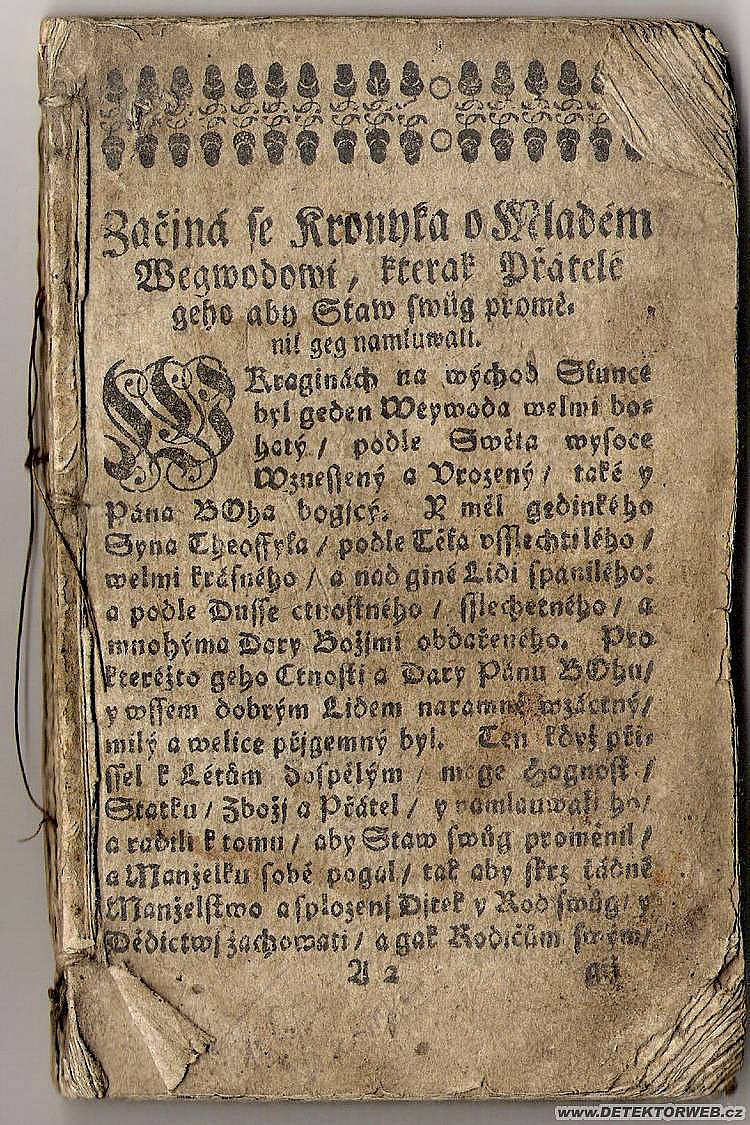 Začjná se Kronyka o Mladém
Wegwodowi, kterak Přátelé
geho aby Staw swůg promě-
nil geg namluwali.
W Kraginách na wýchod Slunce
byl geden Weywoda welmi bo-
hatý / podle Swěta wysoce
Wznessený a Vrozený / také y
Pána BOha bogjcý. Y měl gedinkého
Syna Theoffyla / podle Těla vsslechtilého /
welmi krásného / a nad giné Lidi spanilého:
a podle Dusse ctnostného / sslechetného / a
mnohýma Dary Božjmi obdařeného. Pro
kteréžto geho Ctnosti a Dary Pánu BOhu /
y wssem dobrým Lidem náramně wzáctný /
milý a welice přjgemný byl. Ten když při-
ssel k Létům dospělým / mage hognost /
Statku / Zbožj a Přátel / y namlauwali ho /
a radili k tomu / aby Staw swůg proměnil /
a Manželku sobě pogal / tak aby skrz řádné
Manželstwo a splozenj Djtek y Rod swůg / y
Dědictwj zachowati / a gak Rodičům swým /
A 2
www.DETEKTORWEB.cz